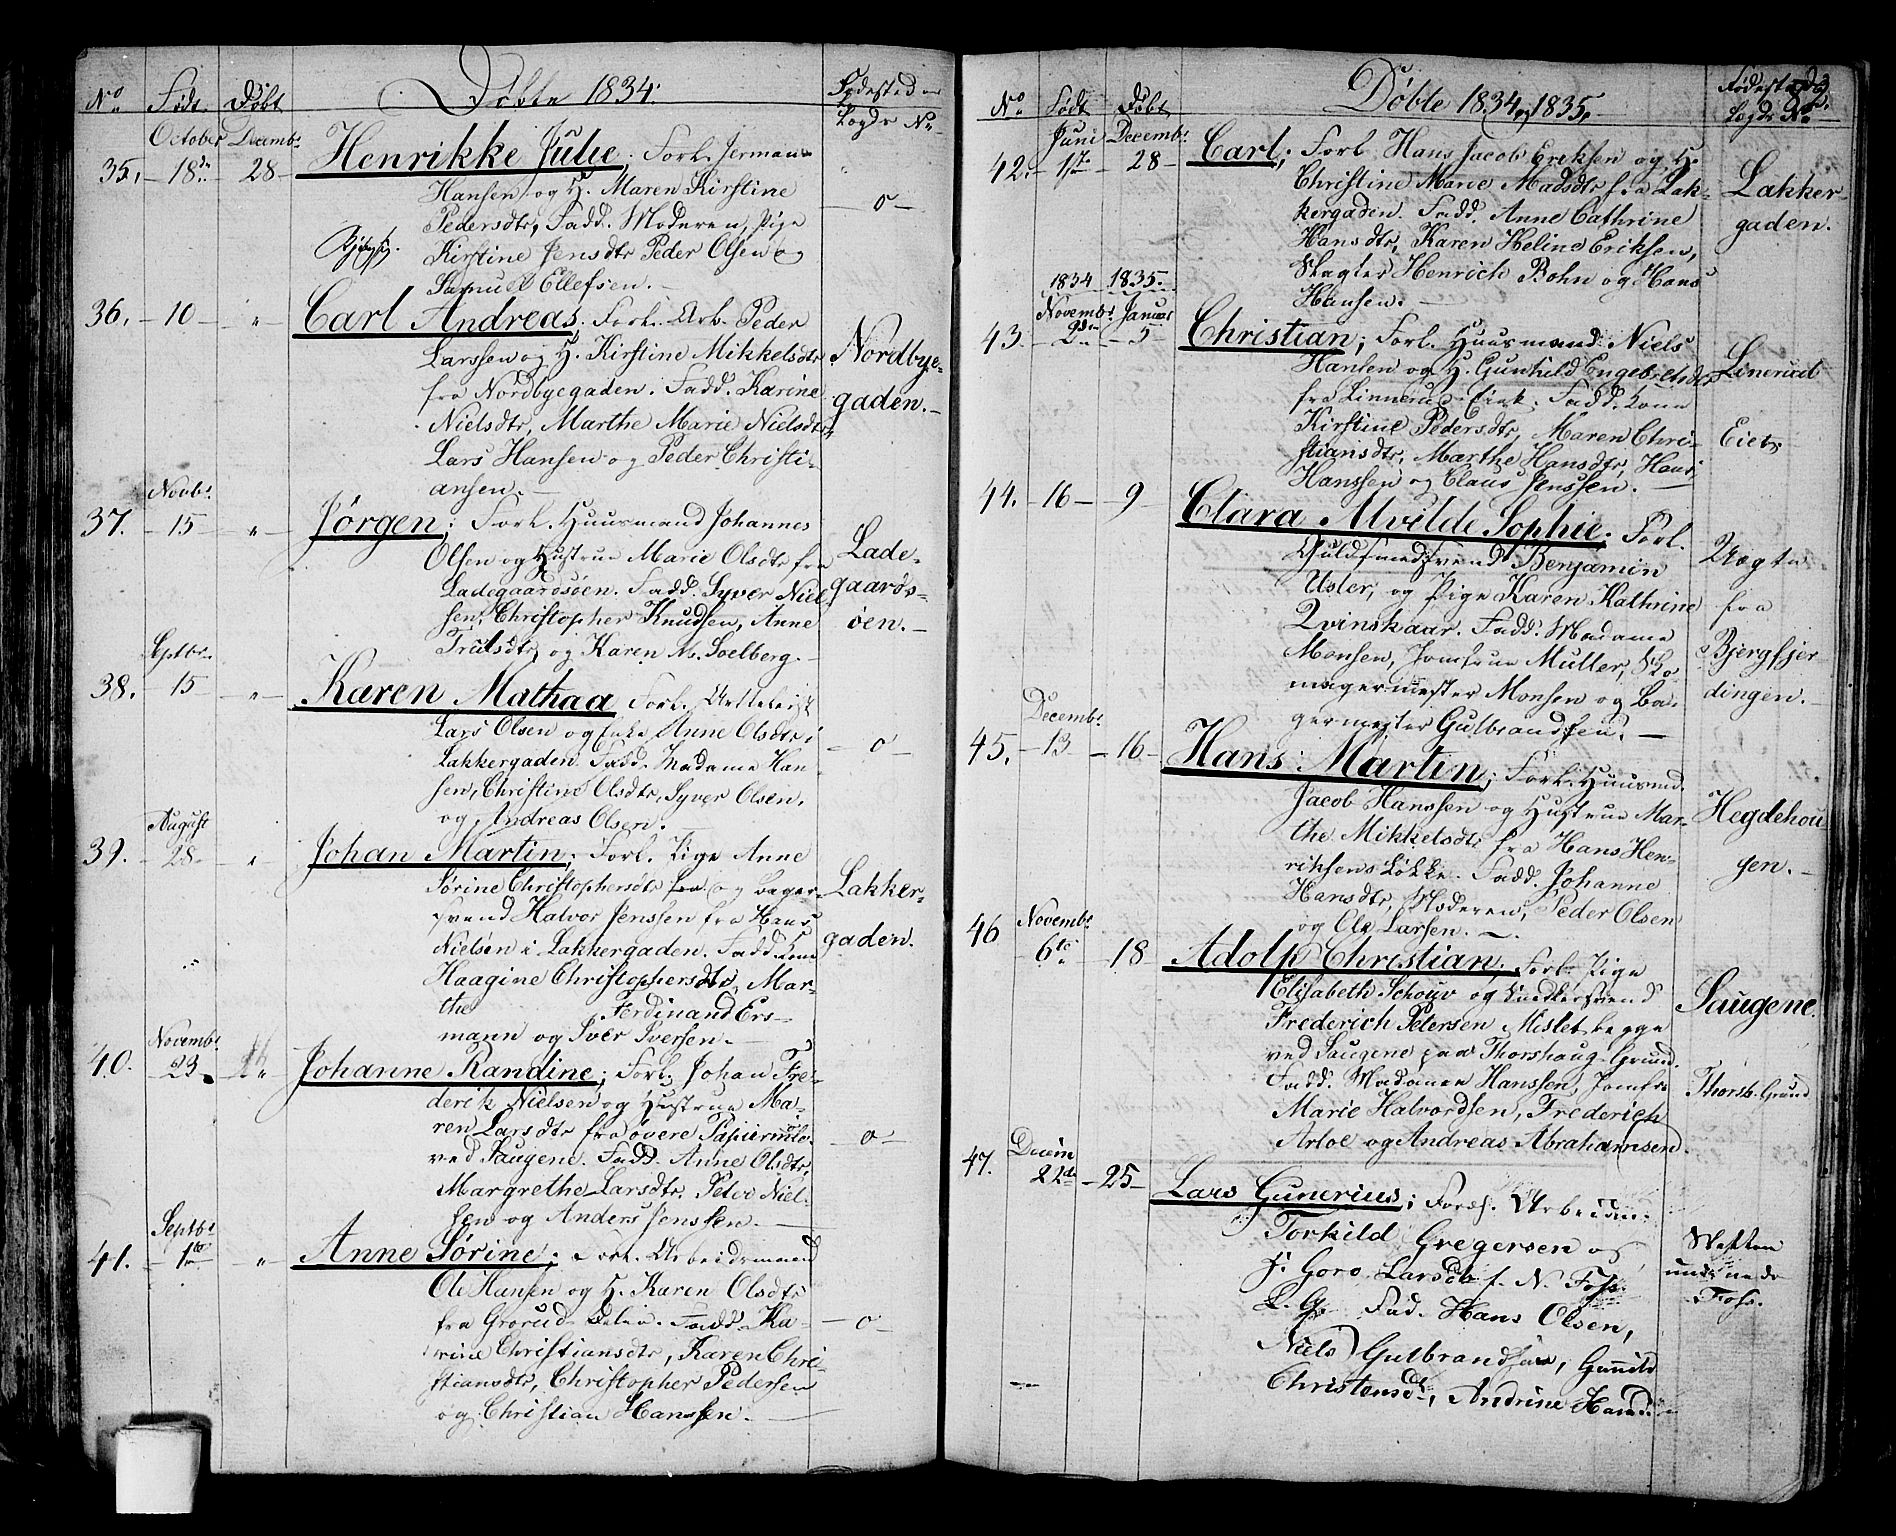 Döbte 1834.
No Födt Döbt
Födested og Lægds No
October Decembr
35. 18de 28 Henrikke Julie; Forl. Jerman
Hansen og H. Maren Kirstine
Pedersdtr, Fadd. Moderen, Pige
Kirstine Jensdtr Peder Olsen og
Samuel Ellefsen.
o
36. 10 " Carl Andreas. Forl. Arb. Peder
Larssen og H. Kirstine Mikkelsdtr
fra Nordbyegaden. Fadd. Karine
Nielsdtr, Marthe Marie Nielsdtr
Lars Hansen og Peder Christi-
ansen.
Nordbye-
gaden.
Novbr
37. 15 " Jørgen; Forl. Huusmand Johannes
Olsen og Hustrue Marie Olsdtr fra
Ladegaardsøen. Fadd. Syver Niel-
sen, Christopher Knudsen, Anne
Trulsdtr og Karen M. Soelberg.
Lade-
gaards-
øen.
Septbr
38. 15 " Karen Mathea Forl.
Lars Olsen og Anne Olsdtr i
Lakkergaden. Fadd. Madame Han-
sen, Christine Olsdtr, Syver Olsen,
og Andreas Olsen.
o
August
39. 28 " Johan Martin; Forl. Pige Anne
Sørine Christophersdtr fra og Bager-
svend Halvor Jenssen fra Hans
Nielsen i Lakkergaden. Fadd. Kone
Haagine Christophersdtr, Mar-
the Ferdinand Ers-
mann og Iver Iversen.
Lakker-
gaden.
Novembr
40. 23. Johanne Randine; Forl. Johan Fre-
derik Nielsen og Hustrue Ma-
ren Larsdtr fra øvere Papiermølle
ved Saugene. Fadd. Anne Olsdtr,
Margrethe Larsdtr, Peter Niel-
sen og Anders Jenssen.
o
Septbr
41. 1te " Anne Sørine; Forl. Arbeidsmand
Ole Hansen og H. Karen Olsdtr
fra Grorud Fadd. Ka-
rine Christiansdtr, Karen Chri-
stiansdtr, Christopher Pedersen
og Christian Hanssen.
o
Döbte 1834, 1835.
No Födt Döbt
Födested og
Lægds No
Juni Decembr
42. 1ste 28 Carl; Forl. Hans Jacob Eriksen og H.
Christine Marie Madsdtr fra Lak-
kergaden. Fadd. Anne Cathrine
Hansdtr, Karen Heline Eriksen,
Slagter Henrich Bohn og Hans
Hansen.
Lakker-
gaden.
1834 1835.
Novembr Januar
43. 2den 5 Christian; Forl. Huusmand Niels
Hansen og H. Gunhild Engebretsdtr
fra Linnerud Eiet. Fadd. Kone
Kirstine Pedersdtr, Maren Chri-
stiansdtr, Marthe Hansdtr, Hans
Hanssen og Claus Jenssen.
Linerud
Eiet
44. 16 9 Clara Alvilde Sophie. Forl.
Guldsmedsvend Benjamin
Usler, og Pige Karen Kathrine
Qvinskaar. Fadd. Madame
Monsen, Jomfrue Muller, Sko-
magermester Monsen og Ba-
germester Gulbrandsen.
Uægte
fra
Bjergfjer-
dingen.
Decembr
45. 13 16 Hans Martin; Forl. Huusmd.
Jacob Hanssen og Hustrue Mar-
the Mikkelsdtr fra Hans Hen-
riksens Løkke. Fadd. Johanne
Hansdtr, Moderen, Peder Olsen
og Ole Larsen.
Hegdehou
gen.
Novembr
46 6te 18 Adolph Christian; Forl. Pige
Elisabeth Schouv og Snedkersvend
Frederich Petersen Mislet begge
ved Saugene paa Thorshaug Grund.
Fadd. Madame Hanssen, Jomfr.
Marie Halvordsen, Frederich
Arloe og Andreas Abrahamsen.
Saugene.
Thorsh. Grund
Decem
47. 22de 25 Lars Gunerius; Foræl. Arbeidm.
Torkild Gregersen og
H. Goro Larsdtr f. N. Foss
L. G. Fad. Hans Olsen,
Niels Gulbrandsen, Gunild
Christensdtr, Andrine Hansd
nede
Foss.